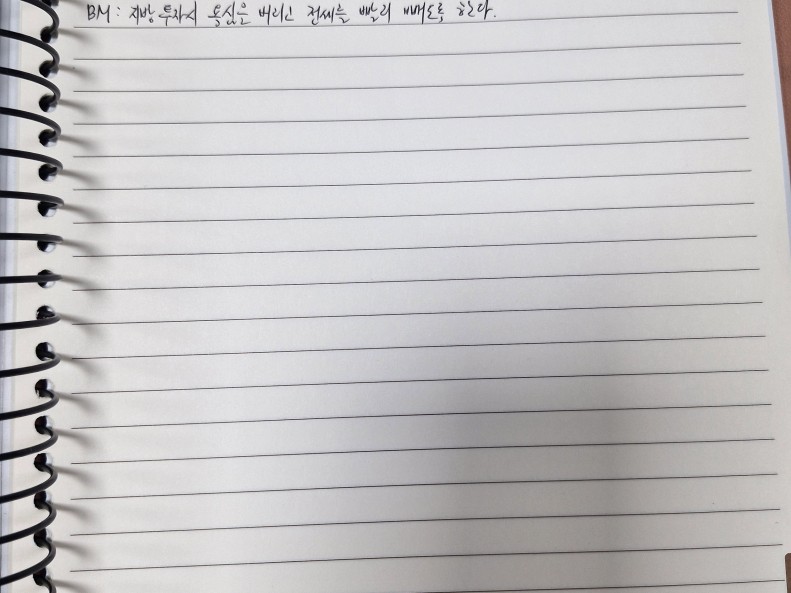 BM : 지방 투자시 욕심을 버리고 전세를 빨리 빼도록 한다.